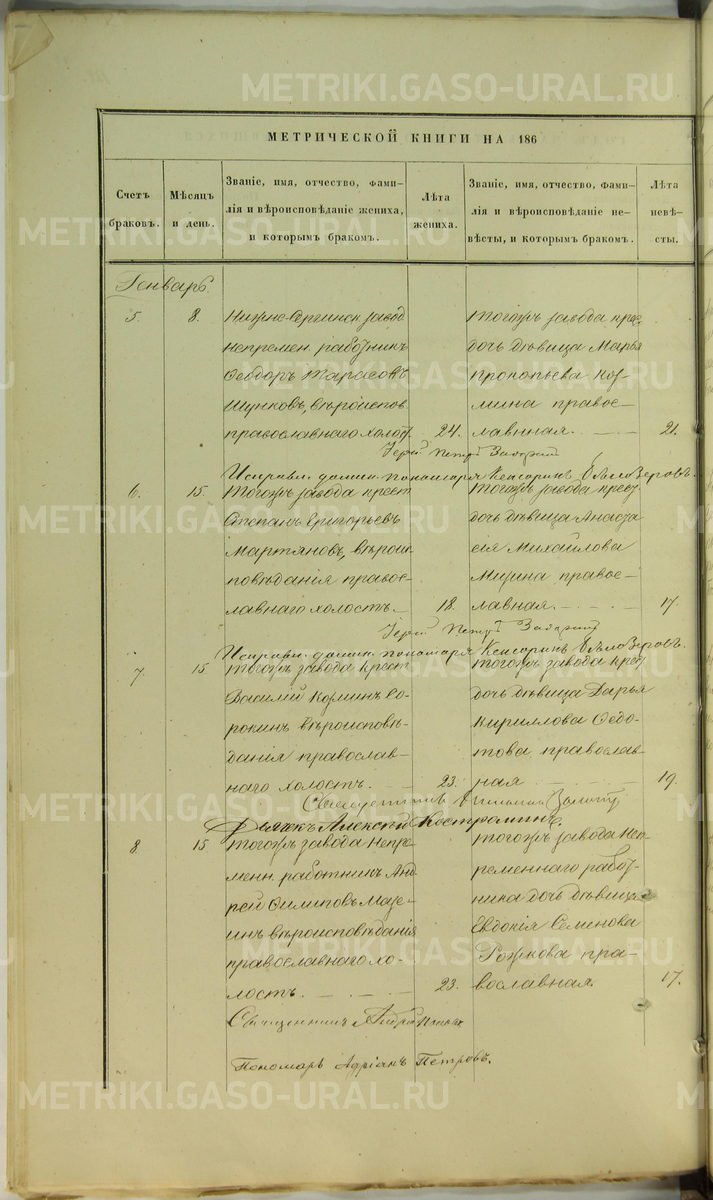 METRIKI.GASO-URAL.RU
МЕТРИЧЕСКОЙ КНИГИ НА 186
Счетъ браковъ.
Мѣсяцъ и день.
Званіе, имя, отчество, фами-
лія и вѣроисповѣданіе жениха,
и которымъ бракомъ.
Лѣта жениха.
Званіе, имя, отчество, фами-
лія и вѣроисповѣданіе не-
вѣсты, и которымъ бракомъ.
Лѣта невѣ-
сты.
Генварь
5. 8. Нижне-Сергинск. завод
непремен. работникъ
Ѳеодоръ Тарасовъ
Шунковъ, вѣроиспов.
православнаго холост. 24.
Тогожъ завода крес.
дочь дѣвица Марья
Прокопьева
мина правос-
лавнная. 21.
Іерей Петръ
Исправл. должн. пономаря Кенсоринъ Бѣлозеровъ.
6. 15. Тогожъ завода крест
Степанъ Григорьевъ
Мартяновъ, вѣроис
повѣданія правос-
лавнаго холостъ. 18.
Тогожъ завода крес.
дочь дѣвица Анаста
сія Михайлова
правос-
лавная. 17.
Іерей Петръ
Исправл. должн. пономаря Кенсоринъ Бѣлозеровъ.
7. 15 Тогожъ завода крест
Василій Козминъ Со-
рокинъ вѣроисповѣ-
данія православ-
наго холостъ. 23.
Тогожъ завода крес.
дочь дѣвица Дарья
Кириллова Ѳедо-
това православ-
ная 19.
Священникъ
Дьячекъ Алексѣй Костроминъ.
8. 15 Тогожъ завода непре-
менн. работникъ Анд
рей Филиповъ Мазе-
инъ вѣроисповѣданія
православнаго хо-
лостъ. 23.
Тогожъ завода неп
ременнаго работ-
ника дочь дѣвица
Евдокія Семенова
Рожкова пра-
вославная. 17.
Священникъ Андрей
Пономарь Адріанъ Петровъ.